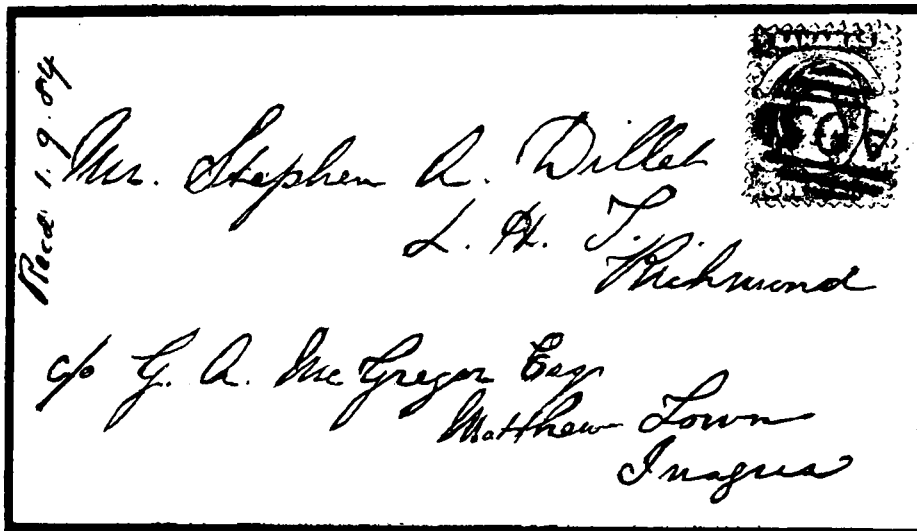 Recd 1.9.84
BANAMAS
ONE
Mr. Stephen A. Dillet
L. H. T.
Richmond
c/o G. A. McGregor Esq
Matthew Town
Inagua